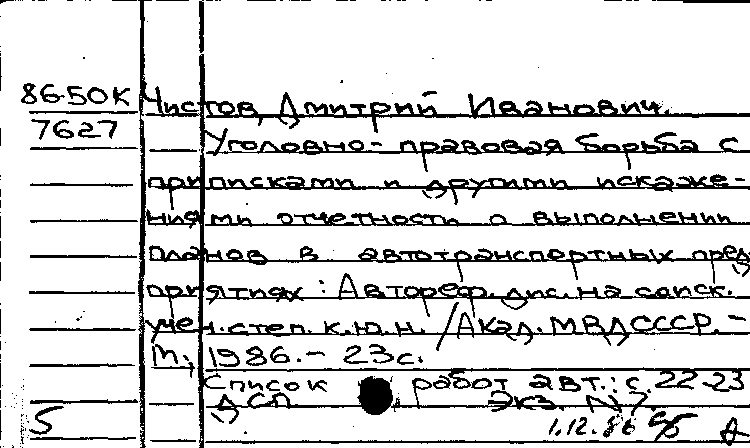 86-50К Чистов, Дмитрий Иванович.
7627
Уголовно-правовая борьба с
приписками и другими искаже-
ниями отчетности о выполнении
планов в автотранспортных пред-
приятиях: Автореф. дис. на соиск.
учен. степ. к.ю.н. / Акад. МВД СССР. -
М., 1986. - 23 с.
Список работ авт.: с. 22-23
ДСП Экз. N7
5 1.12.86